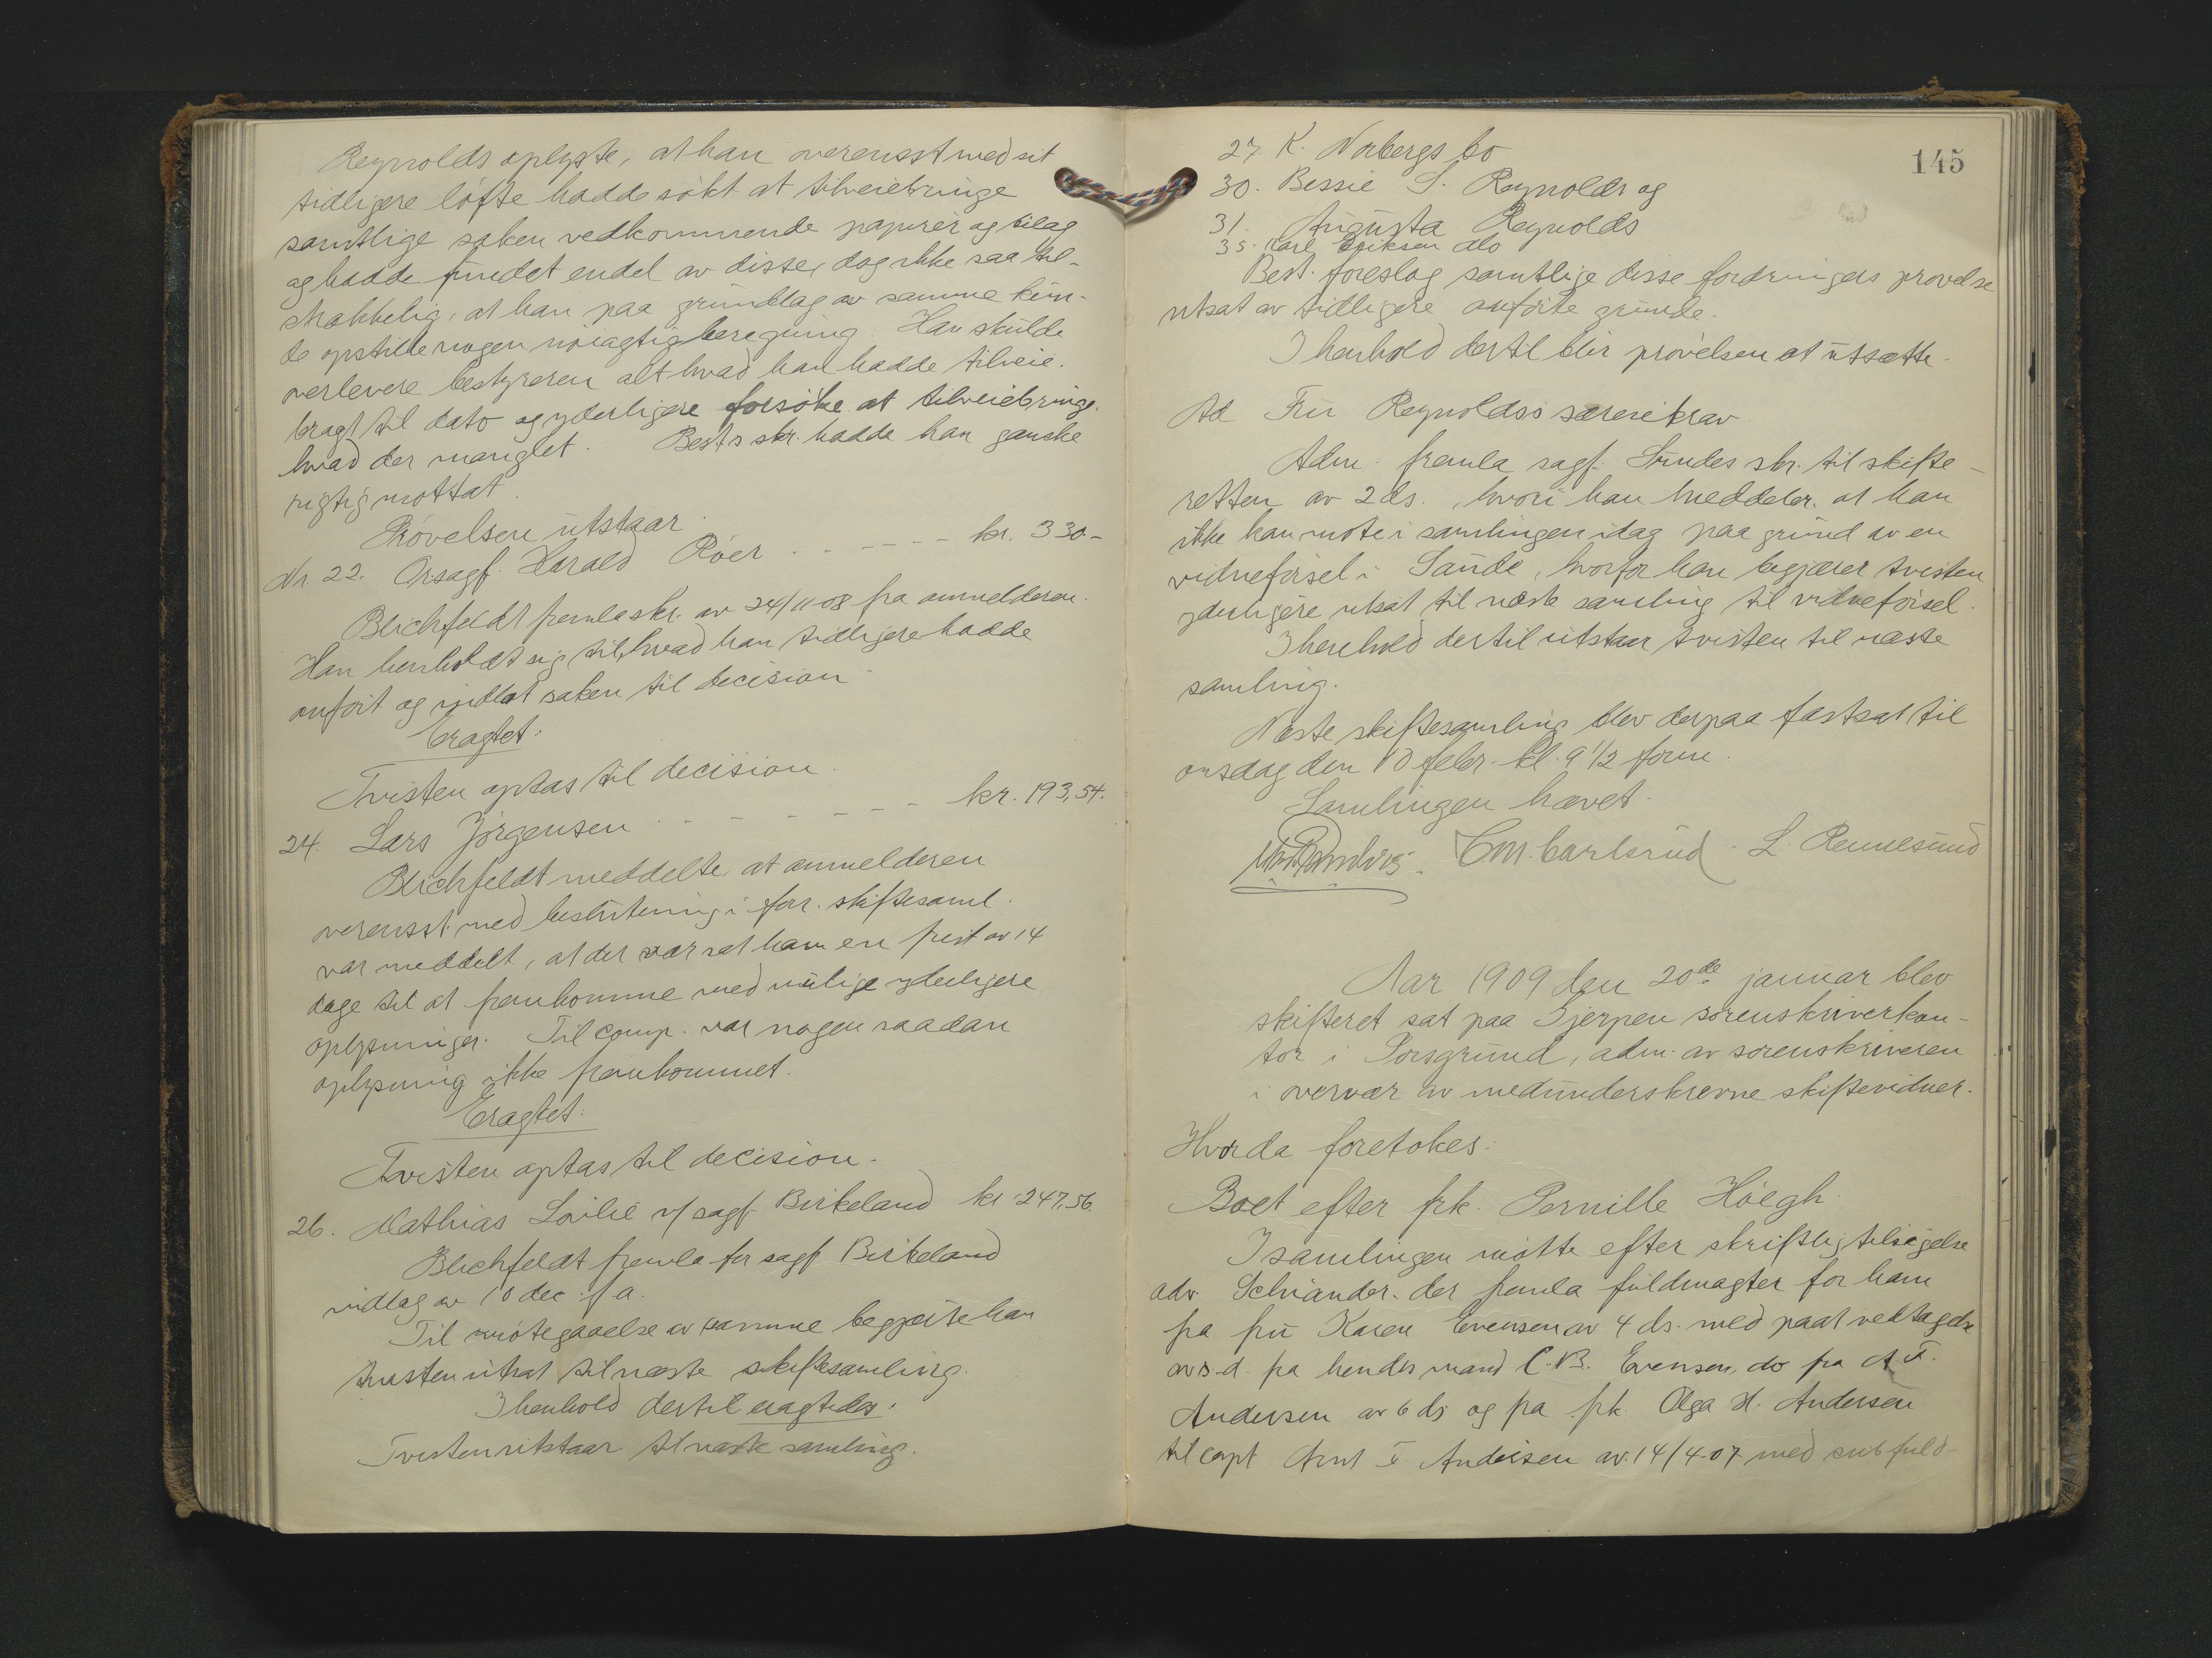 Reynolds oplyste, at han overensst med sit
tidligere löfte hadde sökt at tilveiebringe
samtlige saken vedkommende papirer og bilag
og hadde fundet endel av disse, dog ikke saa til-
strækkelig, at han paa grundlag av samme kun-
de opstille nogen nöiagtig beregning. Han skulde
overlevere bestyreren alt hvad han hadde tilveie-
bragt til dato og yderligere forsöke at tilveiebringe
hvad der manglet. Best.s skr. hadde han ganske
rigtig mottat.
Prövelsen utstaar.
Nr. 22. Orsagf. Harald Röer - - - - - - kr. 330.-
Blichfeldt fremla skr. av 24/11-08 fra anmelderen.
Han henholdt sig til hvad han tidligere hadde
anfört og indlot saken til decision
Eragtet:
Tvisten optas til decision.
24. Lars Jörgensen - - - - - - kr. 193,54.
Blichfeldt meddelte at anmelderen
overensst. med beslutning i forr. skiftesaml.
var meddelt, at der var sat ham en frist av 14
dage til at fremkomme med mulige yderligere
oplysninger. Til comp. var nogen saadan
oplysning ikke fremkommet.
Eragtet:
Tvisten optas til decision.
26. Mathias v/ sagf. Birkeland kr. 247,56.
Blichfeldt fremla for sagf. Birkeland
indlag av 10 dec. f.a.
Til imötegaaelse av samme begjærte han
tvisten utsat til næste skiftesamling.
I henhold dertil eragtedes:
Tvisten utstaar til næste samling.
27. K. Norbergs bo
30. Bessie S. Reynolds og
31. Augusta Reynolds
35. Carl Eriksen do
Best. foreslog samtlige disse fordringers prövelse
utsat av tidligere anförte grunde.
I henhold dertil blir prövelsen at utsætte.
Ad Fru Reynolds's særeiekrav
Adm. fremla sagf. Lundes skr. til skifte-
retten av 2 ds., hvori han meddeler, at han
ikke kan möte i samlingen idag paa grund av en
vidneförsel i Sande, hvorfor han begjærer tvisten
yderligere utsat til næste samling til vidneförsel.
I henhold dertil utstaar tvisten til næste
samling.
Næste skiftesamling blev derpaa fastsat til
onsdag den 10 febr. kl. 9 1/2 form.
Samlingen hævet.
C.M. Carlsrud. L. Rennesund
Aar 1909 den 20de januar blev
skifteret sat paa Gjerpen sorenskriverkon-
tor i Porsgrund, adm. av sorenskriveren
i overvær av medunderskrevne skiftevidner.
Hvorda foretokes:
Boet efter frk. Pernille Höegh.
I samlingen mötte efter skriftlig tilsigelse
adv. Schiander, der fremla fuldmagter for ham
fra fru Karen Evensen av 4 ds. med paat. vedtagelse
av s.d. fra hendes mand C.B. Evensen, do fra A.F.
Andersen av 6 ds og fra frk. Olga H. Andersen
til capt Arnt F. Andersen av 14/4-07 med subfuld-
145